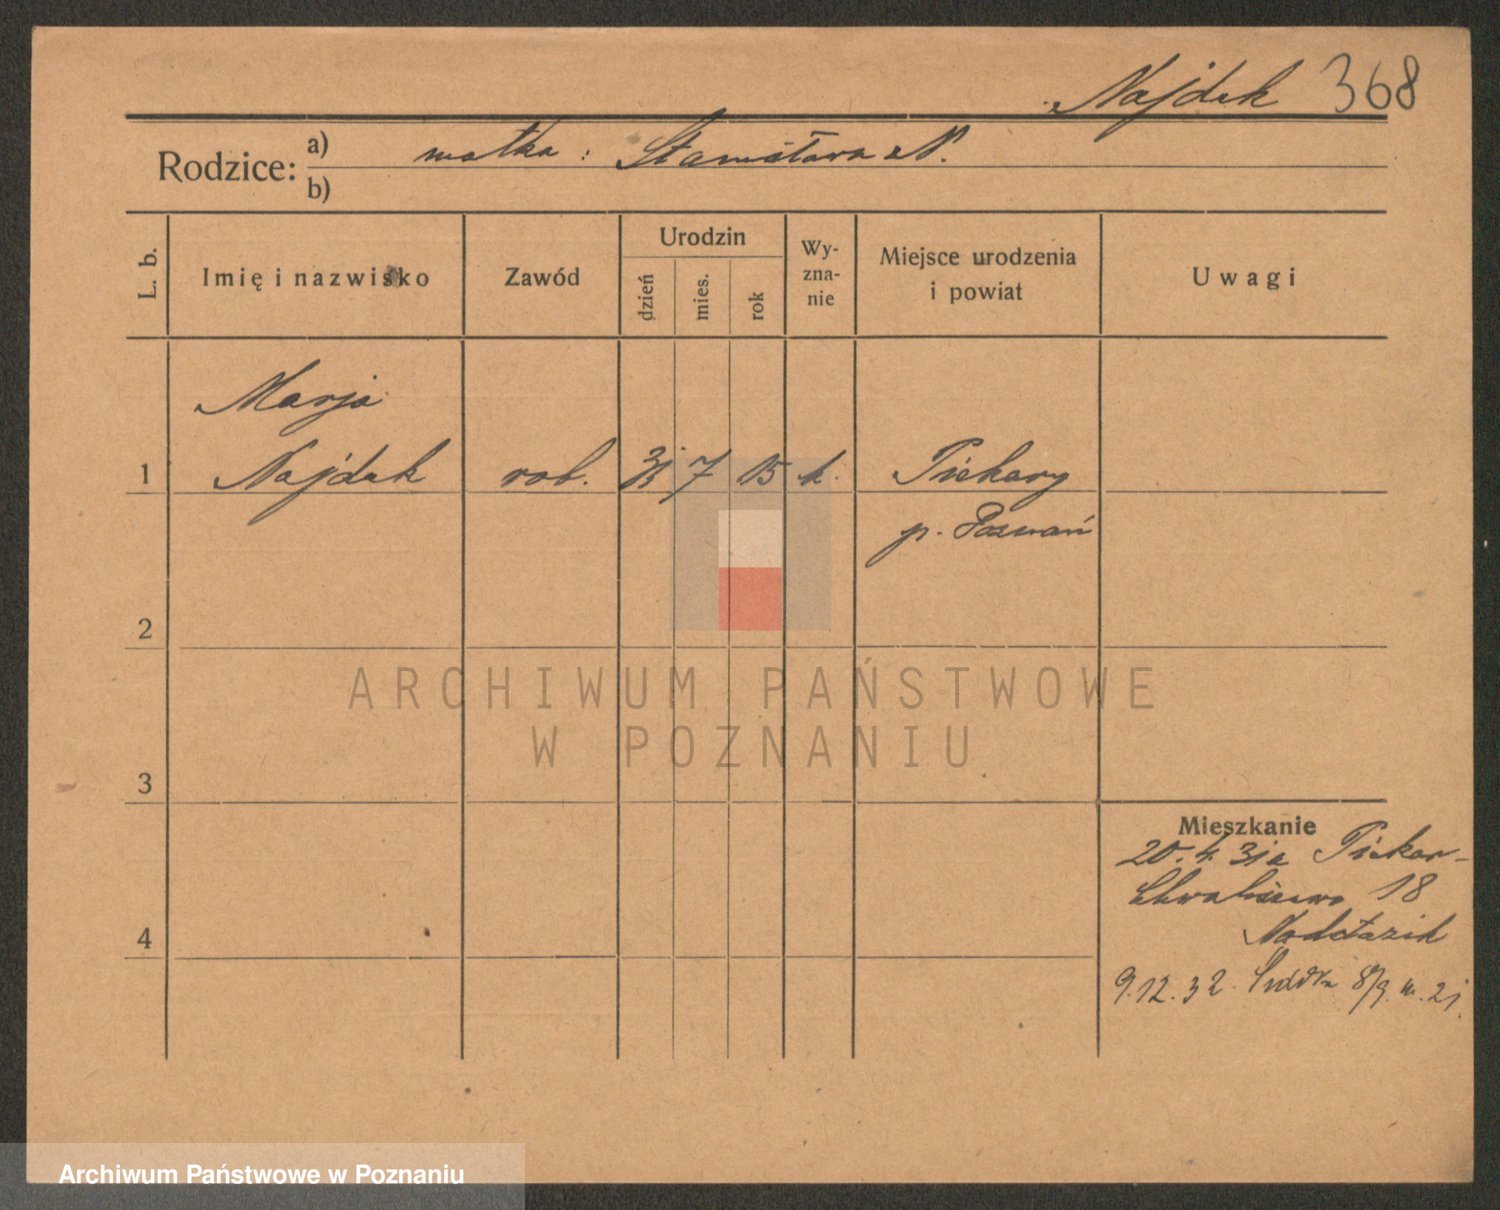 Najdek 368
Rodzice: a) matka: Stanisława N.
b)
L. b.
Imię i nazwisko
Zawód
Urodzin
dzień
mies.
rok
Wy-
zna-
nie
Miejsce urodzenia
i powiat
Uwagi
Marja
1 Najdek rob. 31 7 15 k. Piekary
p. Poznań
2
ARCHIWUM PAŃSTWOWE
W POZNANIU
3
Mieszkanie
20. 4. 31 z Piekar-
Chwaliszewo 18
4
9.12.32. 8/9 m. 21.
Archiwum Państwowe w Poznaniu